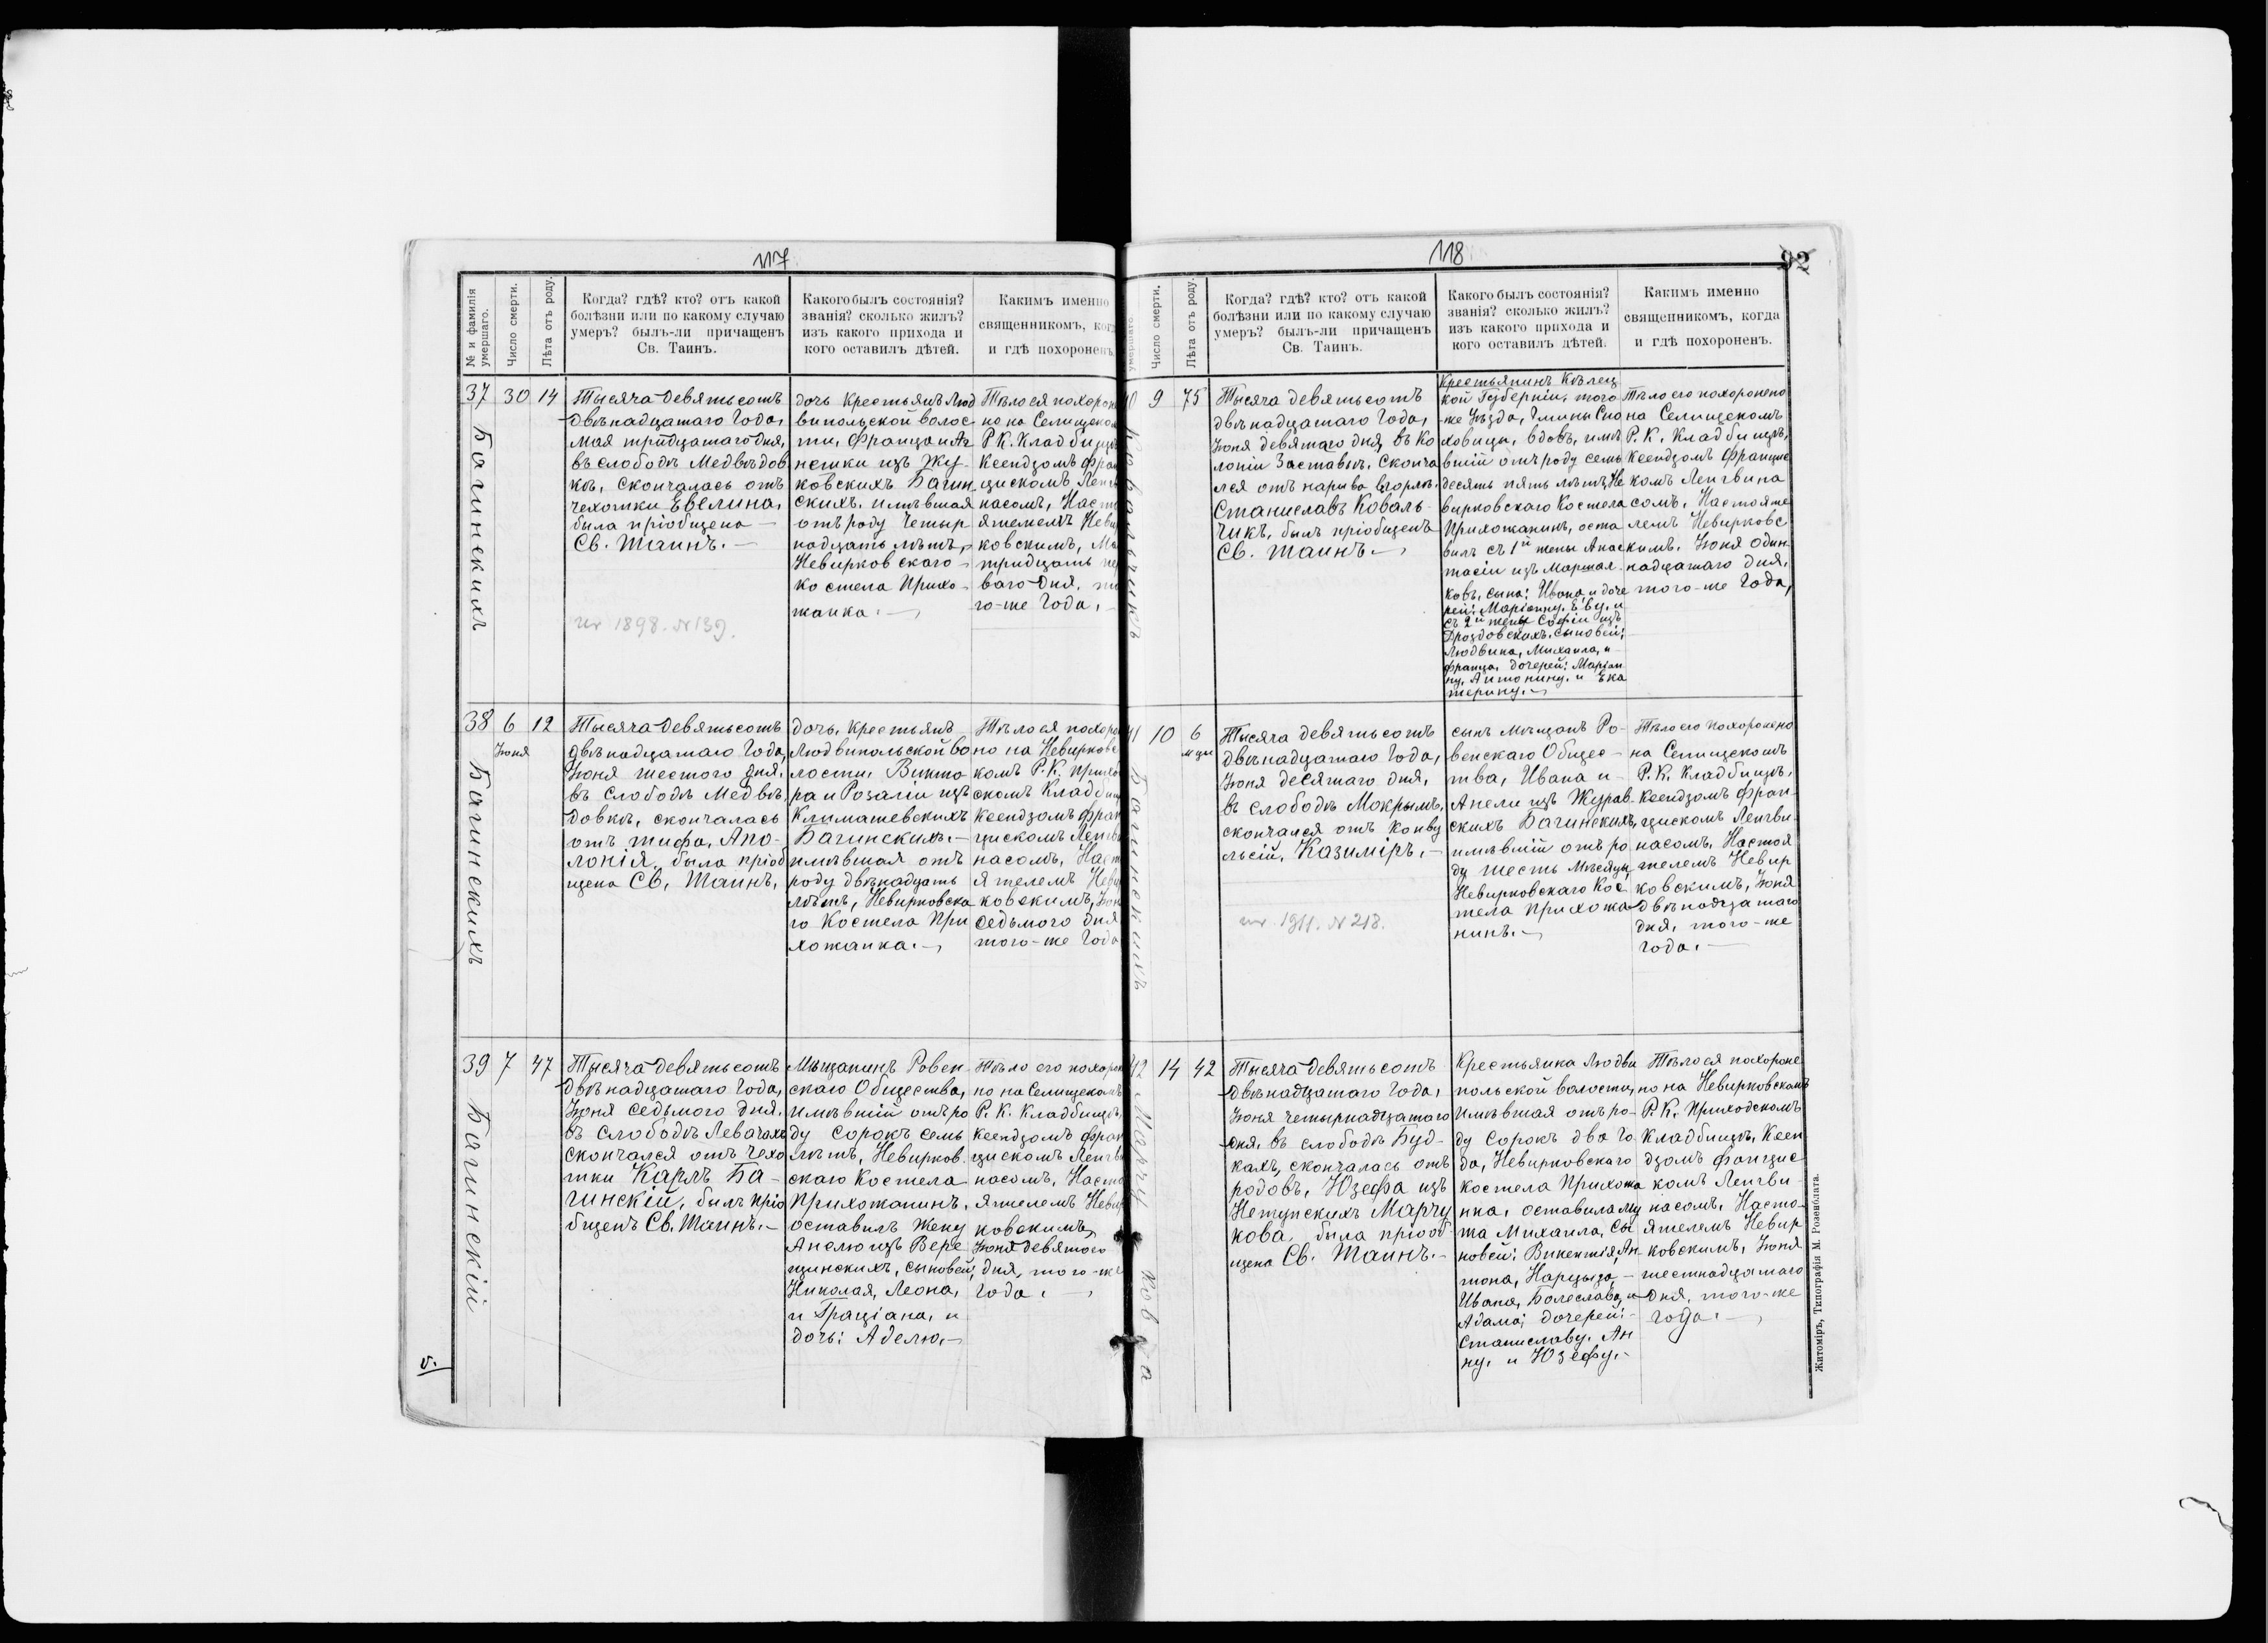 117
№ и фамилія умершаго.
Число смерти.
Лѣта отъ роду.
Когда? гдѣ? кто? отъ какой
болѣзни или по какому случаю
умеръ? былъ-ли причащенъ
Св. Таинъ.
Какого былъ состоянія?
званія? сколько жилъ?
изъ какого прихода и
кого оставилъ дѣтей.
Какимъ именно
священникомъ, ког
и гдѣ похороненъ.
37
Багинскихъ
30
14
Тысяча девятьсотъ
двѣнадцатаго Года,
Мая тридцатаго дня,
въ слободѣ Медвѣдов
кѣ, скончалась отъ
чехотки Евелина,
была пріобщена
Св. Таинъ. —
ur 1898. N 139.
дочь Крестьянъ Люд
випольской волос
ти, Франца и Аг
нешки изъ Жу-
ковскихъ Багин
скихъ, имѣвшая
отъ роду четыр
надцать лѣтъ,
Невирковскаго
костела Прихо
жанка. —
Тѣло ея похорон
но на Селищеко
Р. К. Кладбищѣ
Ксендзомъ Фран
цискомъ Ленгв
насомъ, Наст
ятелемъ Неви
ковскимъ, Ма
тридцать пе
ваго дня, то
го-же Года, —
38
Багинскихъ
6
Іюня
12
Тысяча девятьсотъ
двѣнадцатаго Года,
Іюня шестого дня,
въ слободѣ Медвѣ
довкѣ, скончалась
отъ тифа, Апо-
лонія, была пріоб
щена Св. Таинъ,
дочь, Крестьянъ
Людвипольской во
лости, Викто
ра и Розаліи изъ
Климашевскихъ
Багинскихъ. —
имѣвшая отъ
роду двѣнадцать
лѣтъ, Невирковска
го Костела При
хожанка. —
Тѣло ея похоро
но на Невирковс
комъ Р. К. Прихо
скомъ Кладбищ
Ксендзомъ Фран
цискомъ Ленгви
насомъ, Наст
ятелемъ Неви
ковскимъ, Іюн
седьмого дня
того-же Года
39
Багинскій
7
47
Тысяча девятьсотъ
двѣнадцатаго Года,
Іюня седьмого дня,
въ слободѣ Левачахъ
скончался отъ чехо
тки Карлъ Ба-
гинскій, былъ пріо
бщенъ Св. Таинъ. —
Мѣщанинъ Ровен-
скаго Общества,
имѣвшій отъ ро
ду сорокъ семь
лѣтъ, Невирков-
скаго Костела
Прихожанинъ,
оставилъ Жену
Анелю изъ Вере
щинскихъ, сыновей:
Николая, Леона,
и Граціана, и
дочь: Аделю, —
Тѣло его похорон
но на Селищекомъ
Р. К. Кладбищѣ,
Ксендзомъ Фран
цискомъ Ленгви
насомъ, Насто
ятелемъ Невир
ковскимъ,
Іюня девятого
дня, того-же
Года. —
v.
118
92
умершаго
Число смерти.
Лѣта отъ роду.
Когда? гдѣ? кто? отъ какой
болѣзни или по какому случаю
умеръ? былъ-ли причащенъ
Св. Таинъ.
Какого былъ состоянія?
званія? сколько жилъ?
изъ какого прихода и
кого оставилъ дѣтей.
Какимъ именно
священникомъ, когда
и гдѣ похороненъ.
Ковальчикъ
9
75
Тысяча девятьсотъ
двѣнадцатаго Года,
Іюня девятаго дня, въ Ко
лоніи Заставьѣ, Сконча
лся отъ нарыва въ горлѣ,
Станиславъ Коваль-
чикъ, былъ пріобщенъ
Св. Таинъ —
Крестьянинъ Кѣлец
кой Губерніи, того
же Уѣзда, Гмины Сно
ховицы, вдовъ, имѣ
вшій отъ роду семь
десять пять лѣтъ, Не
вирковскаго Костела
Прихожанинъ, оста
вилъ съ 1й жены Анас
тасіи изъ Маршал
ковъ, сына: Ивана, и доче
рей: Маріанну, Еву, и
съ 2й жены Софіи изъ
Дроздовскихъ, сыновей:
Людвика, Михаила, и
Франца, дочерей: Маріан
ну, Антонину, и Ека
терину. —
Тѣло его похоронено
на Селищекомъ
Р. К. Кладбищѣ,
Ксендзомъ Францис
комъ Ленгвина
сомъ, Настояте
лемъ Невирковс
кимъ, Іюня один
надцатаго дня,
того-же Года,
Багинскихъ
10
6
мцы
Тысяча девятьсотъ
двѣнадцатаго Года,
Іюня десятаго дня,
въ слободѣ Мокрымъ,
скончался отъ конву
льсій, Казиміръ, —
ur 1911. N 218.
сынъ Мѣщанъ Ро-
венскаго Общес-
тва, Ивана и
Анели изъ Журав-
скихъ Багинскихъ,
имѣвшій отъ ро
ду шесть Мѣсяцы,
Невирковскаго Кос
тела Прихожа
нинъ. —
Тѣло его похоронено
на Селищекомъ
Р. К. Кладбищѣ,
Ксендзомъ Фран-
цискомъ Ленгви-
насомъ, Настоя
телемъ Невир
ковскимъ, Іюня
двѣнадцатаго
дня, того-же
Года. —
42
Марчукова
14
42
Тысяча девятьсотъ
двѣнадцатаго Года,
Іюня четырнадцатаго
дня, въ слободѣ Буд-
кахъ, скончалась отъ
родовъ, Юзефа изъ
Нетупскихъ Марчу
кова, была пріоб-
щена Св. Таинъ. —
Крестьянка Людви
польской волости,
имѣвшая отъ ро-
ду сорокъ два Го-
да, Невирковскаго
костела Прихожа
нка, оставила му
жа Михаила, сы
новей: Викентія, Ан-
тона, Нарцыза, —
Ивана, Болеслава, и
Адама; дочерей:
Станиславу, Ан
ну, и Юзефу. —
Тѣло ея похороне
но на Невирковскомъ
Р. К. Приходскомъ
Кладбищѣ, Ксен
дзомъ Фанцис
комъ Ленгви-
насомъ, Насто-
ятелемъ Невир
ковскимъ, Іюня
шестнадцатаго
дня, того-же
года. —
Житоміръ, Типографія М. Розенблата.